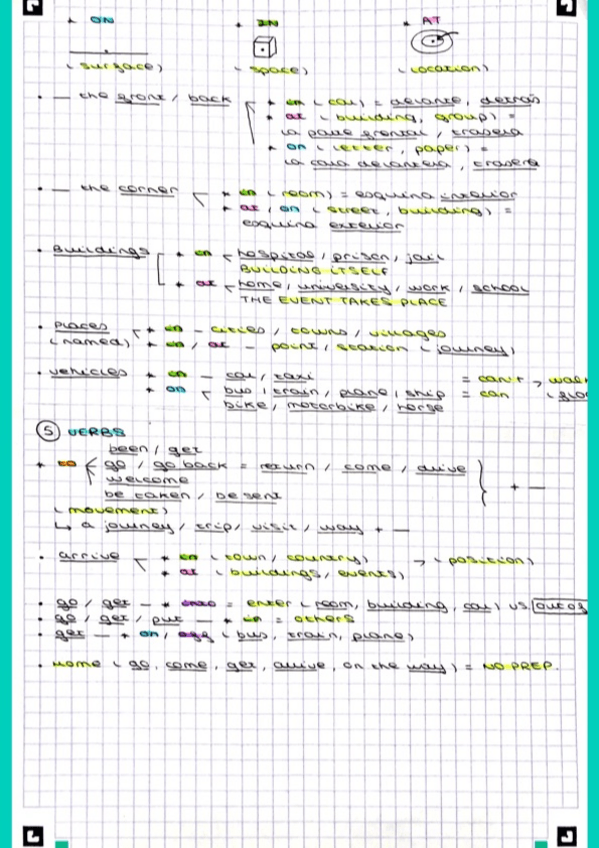 * ON * IN * AT
(surface) (space) (location)
• — the front / back * in (car) = delante, detrás
* at (building, group) =
la parte frontal / trasera
* on (letter, paper) =
la cara delantera, trasera
• — the corner * in (room) = esquina interior
* at / on (street, building) =
esquina exterior
• Buildings * in hospital / prison / jail
BUILDING ITSELF
* at home / university / work / school
THE EVENT TAKES PLACE
• Places * in – cities / towns / villages
(named) * in / at – point / station (journey)
• vehicles * in – car / taxi = can't → walk
* on bus / train / plane / ship = can
bike / motorbike / horse
⑤ VERBS
been / get
* to go / go back = return / come / drive
welcome
be taken / be sent + —
(movement)
↳ a journey / trip / visit / way + —
• arrive * in (town / country) → (position)
* at (buildings / events)
• go / get – * into = enter (room, building, car) vs out of
• go / get / put – * in = others
• get – * on / off (bus, train, plane)
• Home (go, come, get, arrive, on the way) = NO PREP.